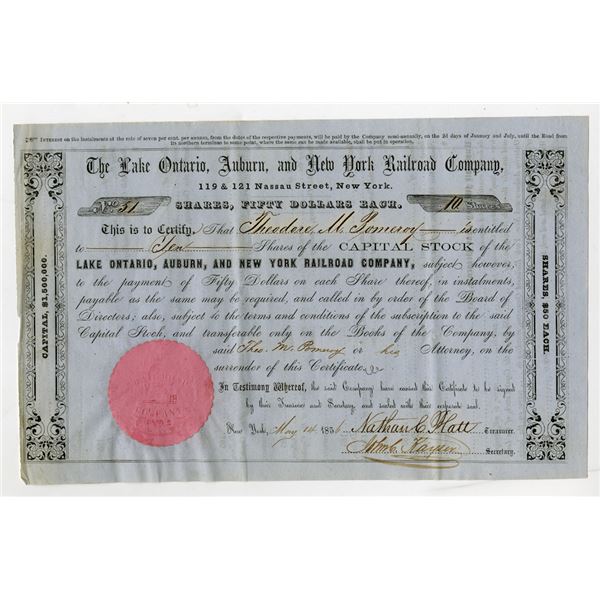 INTEREST on the instalments at the rate of seven per cent. per annum, from the dates of the respective payments, will be paid by the Company semi-annually, on the 2d days of January and July, until the Road from
its northern terminus to some point, where the same can be made available, shall be put in operation.
The Lake Ontario, Auburn, and New York Railroad Company,
119 & 121 Nassau Street, New York.
No 51
SHARES, FIFTY DOLLARS EACH.
10 Shares
This is to Certify, That Theodore M. Pomeroy is entitled
to Ten Shares of the CAPITAL STOCK of the
LAKE ONTARIO, AUBURN, AND NEW YORK RAILROAD COMPANY, subject however,
to the payment of Fifty Dollars on each Share thereof, in instalments,
payable as the same may be required, and called in by order of the Board of
Directors; also, subject to the terms and conditions of the subscription to the said
Capital Stock, and transferable only on the Books of the Company, by
said Theo. M. Pomeroy or his Attorney, on the
surrender of this Certificate.
In Testimony Whereof, the said Company have caused this Certificate to be signed
by their Treasurer and Secretary, and sealed with their corporate seal.
New York, May 14 1856 Nathan C. Platt Treasurer.
Secretary.
CAPITAL, $1,500,000.
SHARES, $50 EACH.